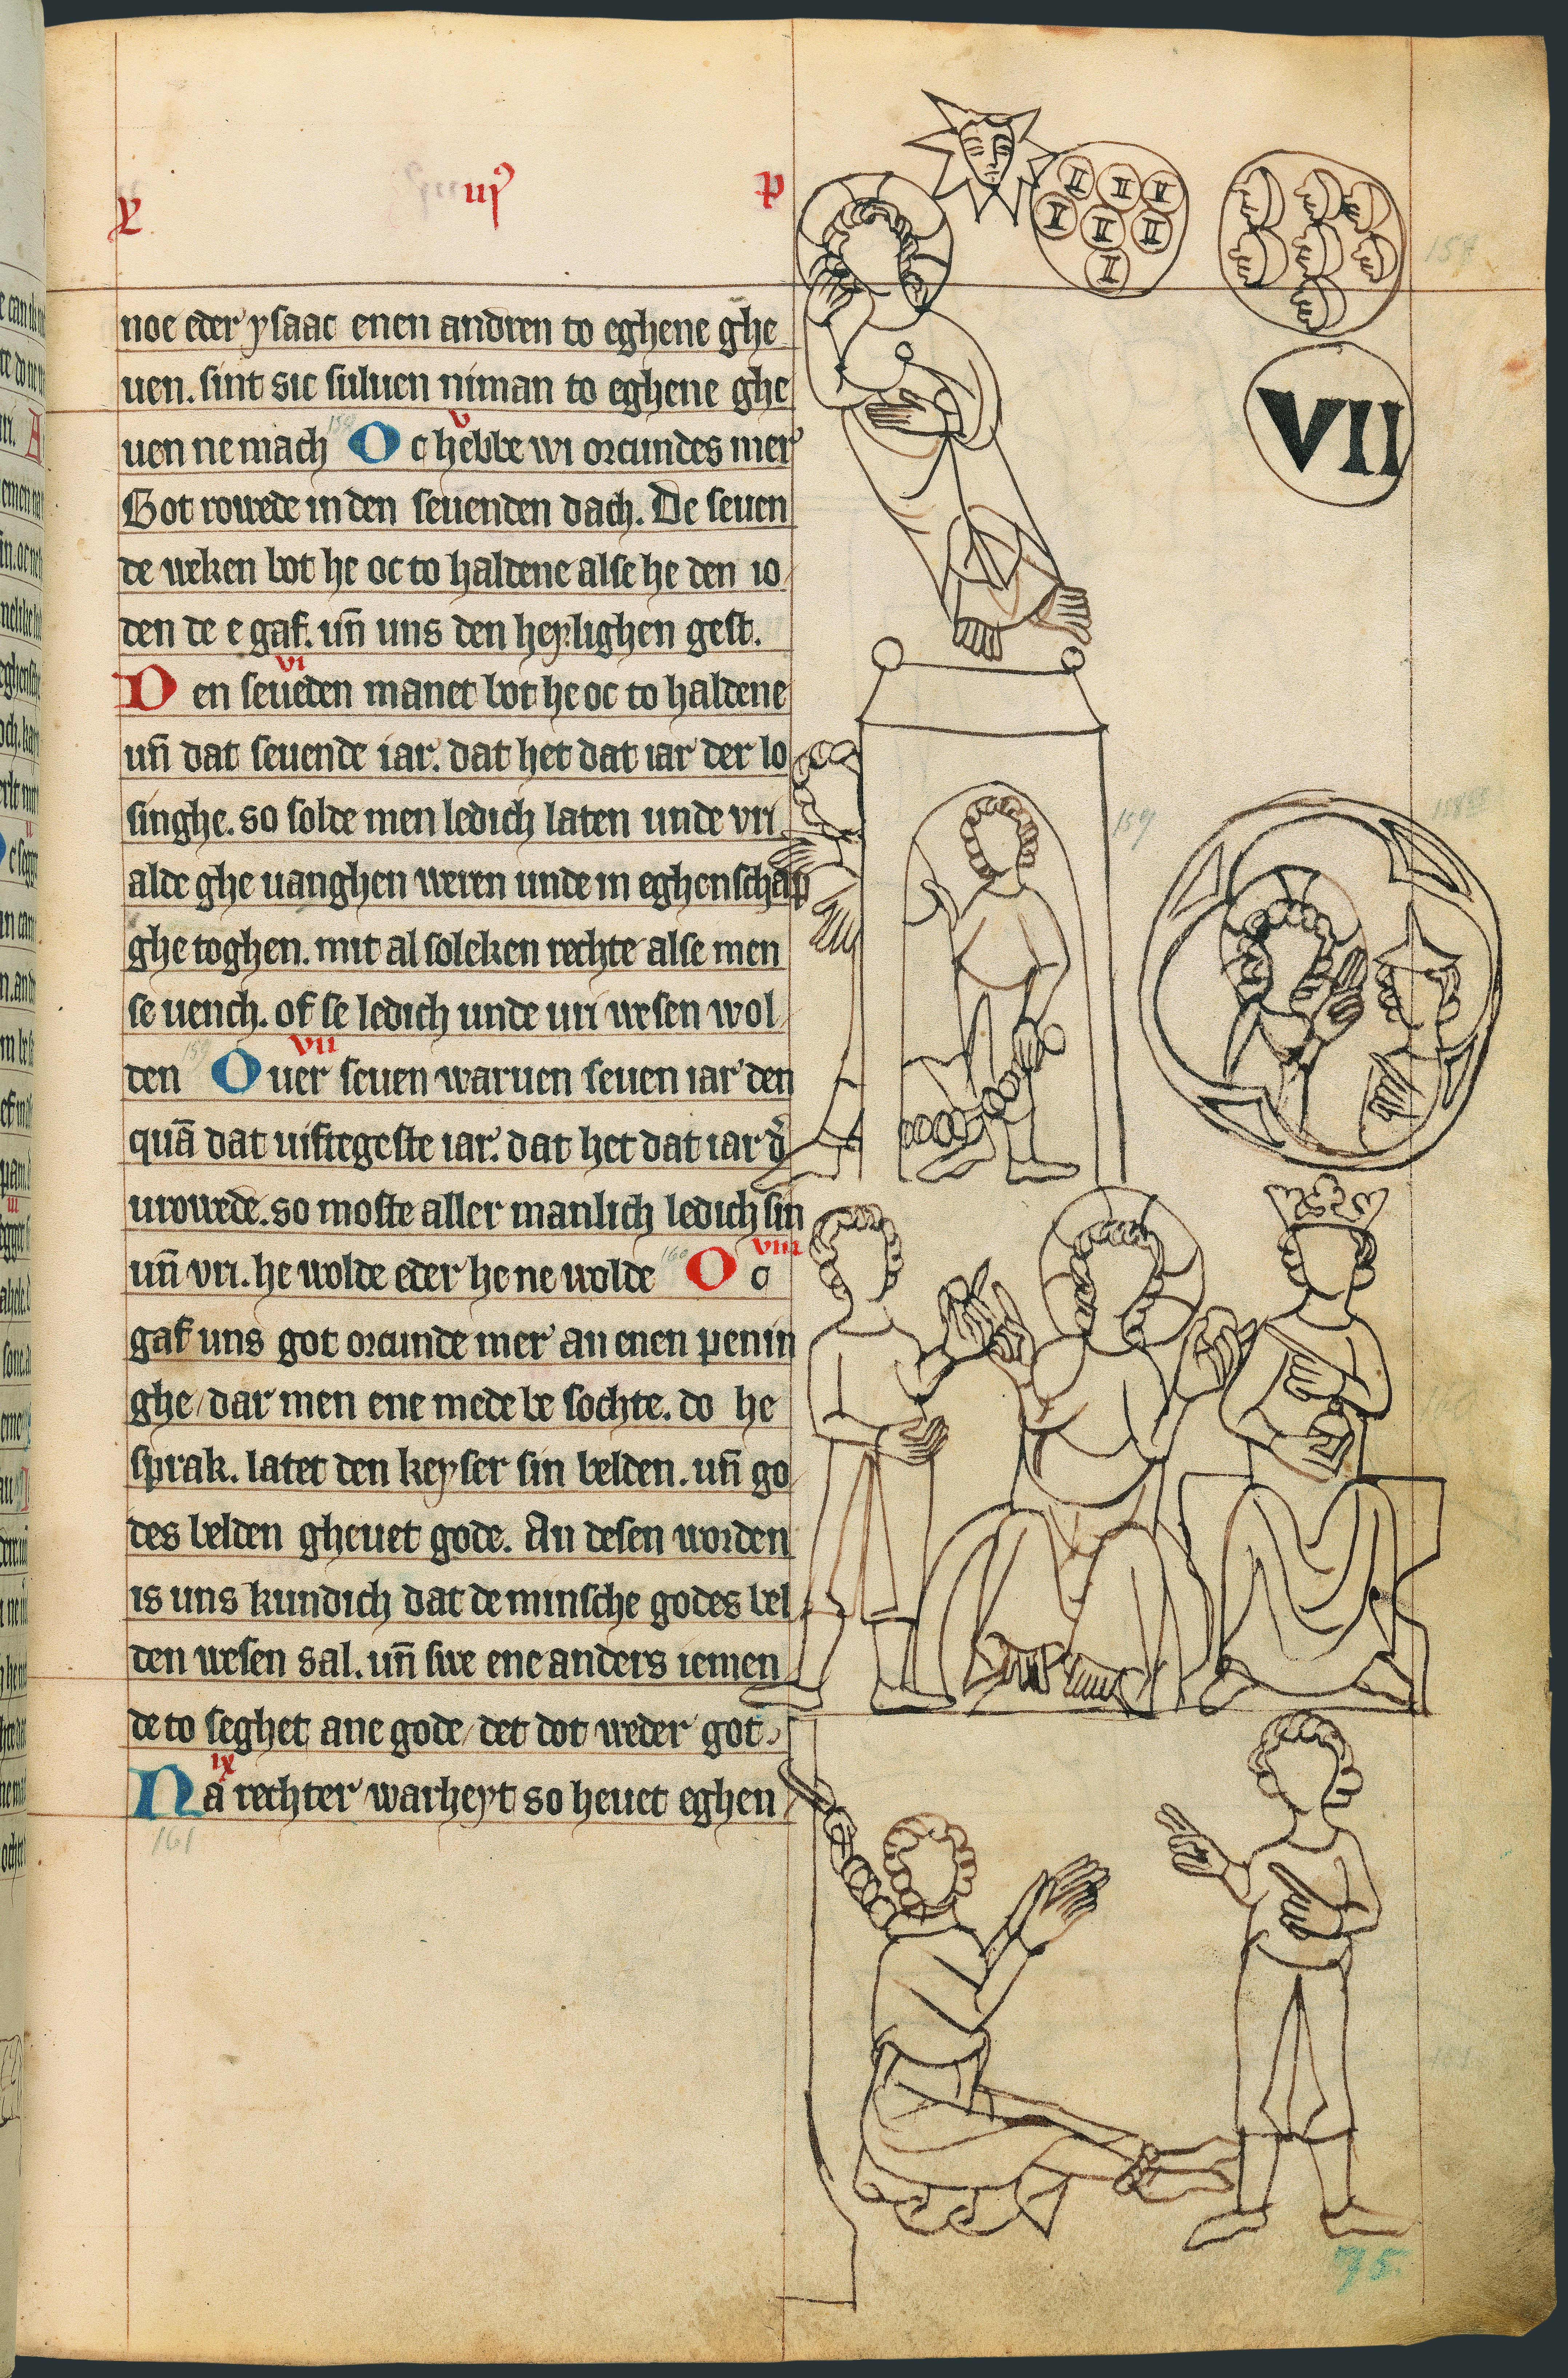 iij⁹ p
noe eder ysaac enen andren to eghene ghe
uen. sint sic suluen niman to eghene ghe
v
uen ne mach O c hebbe wi orcundes mer
Got rowede in den seuenden dach. De seuen
de weken bot he oc to haldene alse he den io
den de e gaf. un̄ uns den heylighen gest.
vi
D en seueden manet bot he oc to haldene
un̄ dat seuende iar. dat het dat iar der lo
singhe. so solde men ledich laten unde vri
alde ghe uanghen weren unde in eghenschap
ghe toghen. mit al soleken rechte alse men
se uench. of se ledich unde uri wesen wol
vii
den O uer seuen waruen seuen iar den
quā dat uiftegeste iar. dat het dat iar d'
urowede. so moste aller manlich ledich sin
viii
un̄ vri. he wolde eder he ne wolde 160 O c
gaf uns got orcunde mer an enen penin
ghe / dar men ene mede be sochte. do he
sprak. latet den keyser sin belden. un̄ go
des belden gheuet gode. An desen worden
is uns kundich dat de minsche godes bel
den wesen sal. un̄ swe ene anders iemen
de to seghet ane gode / det dot weder got.
ix
N a rechter warheyt so heuet eghen
161
II II V
V II II
I
VII
159
75